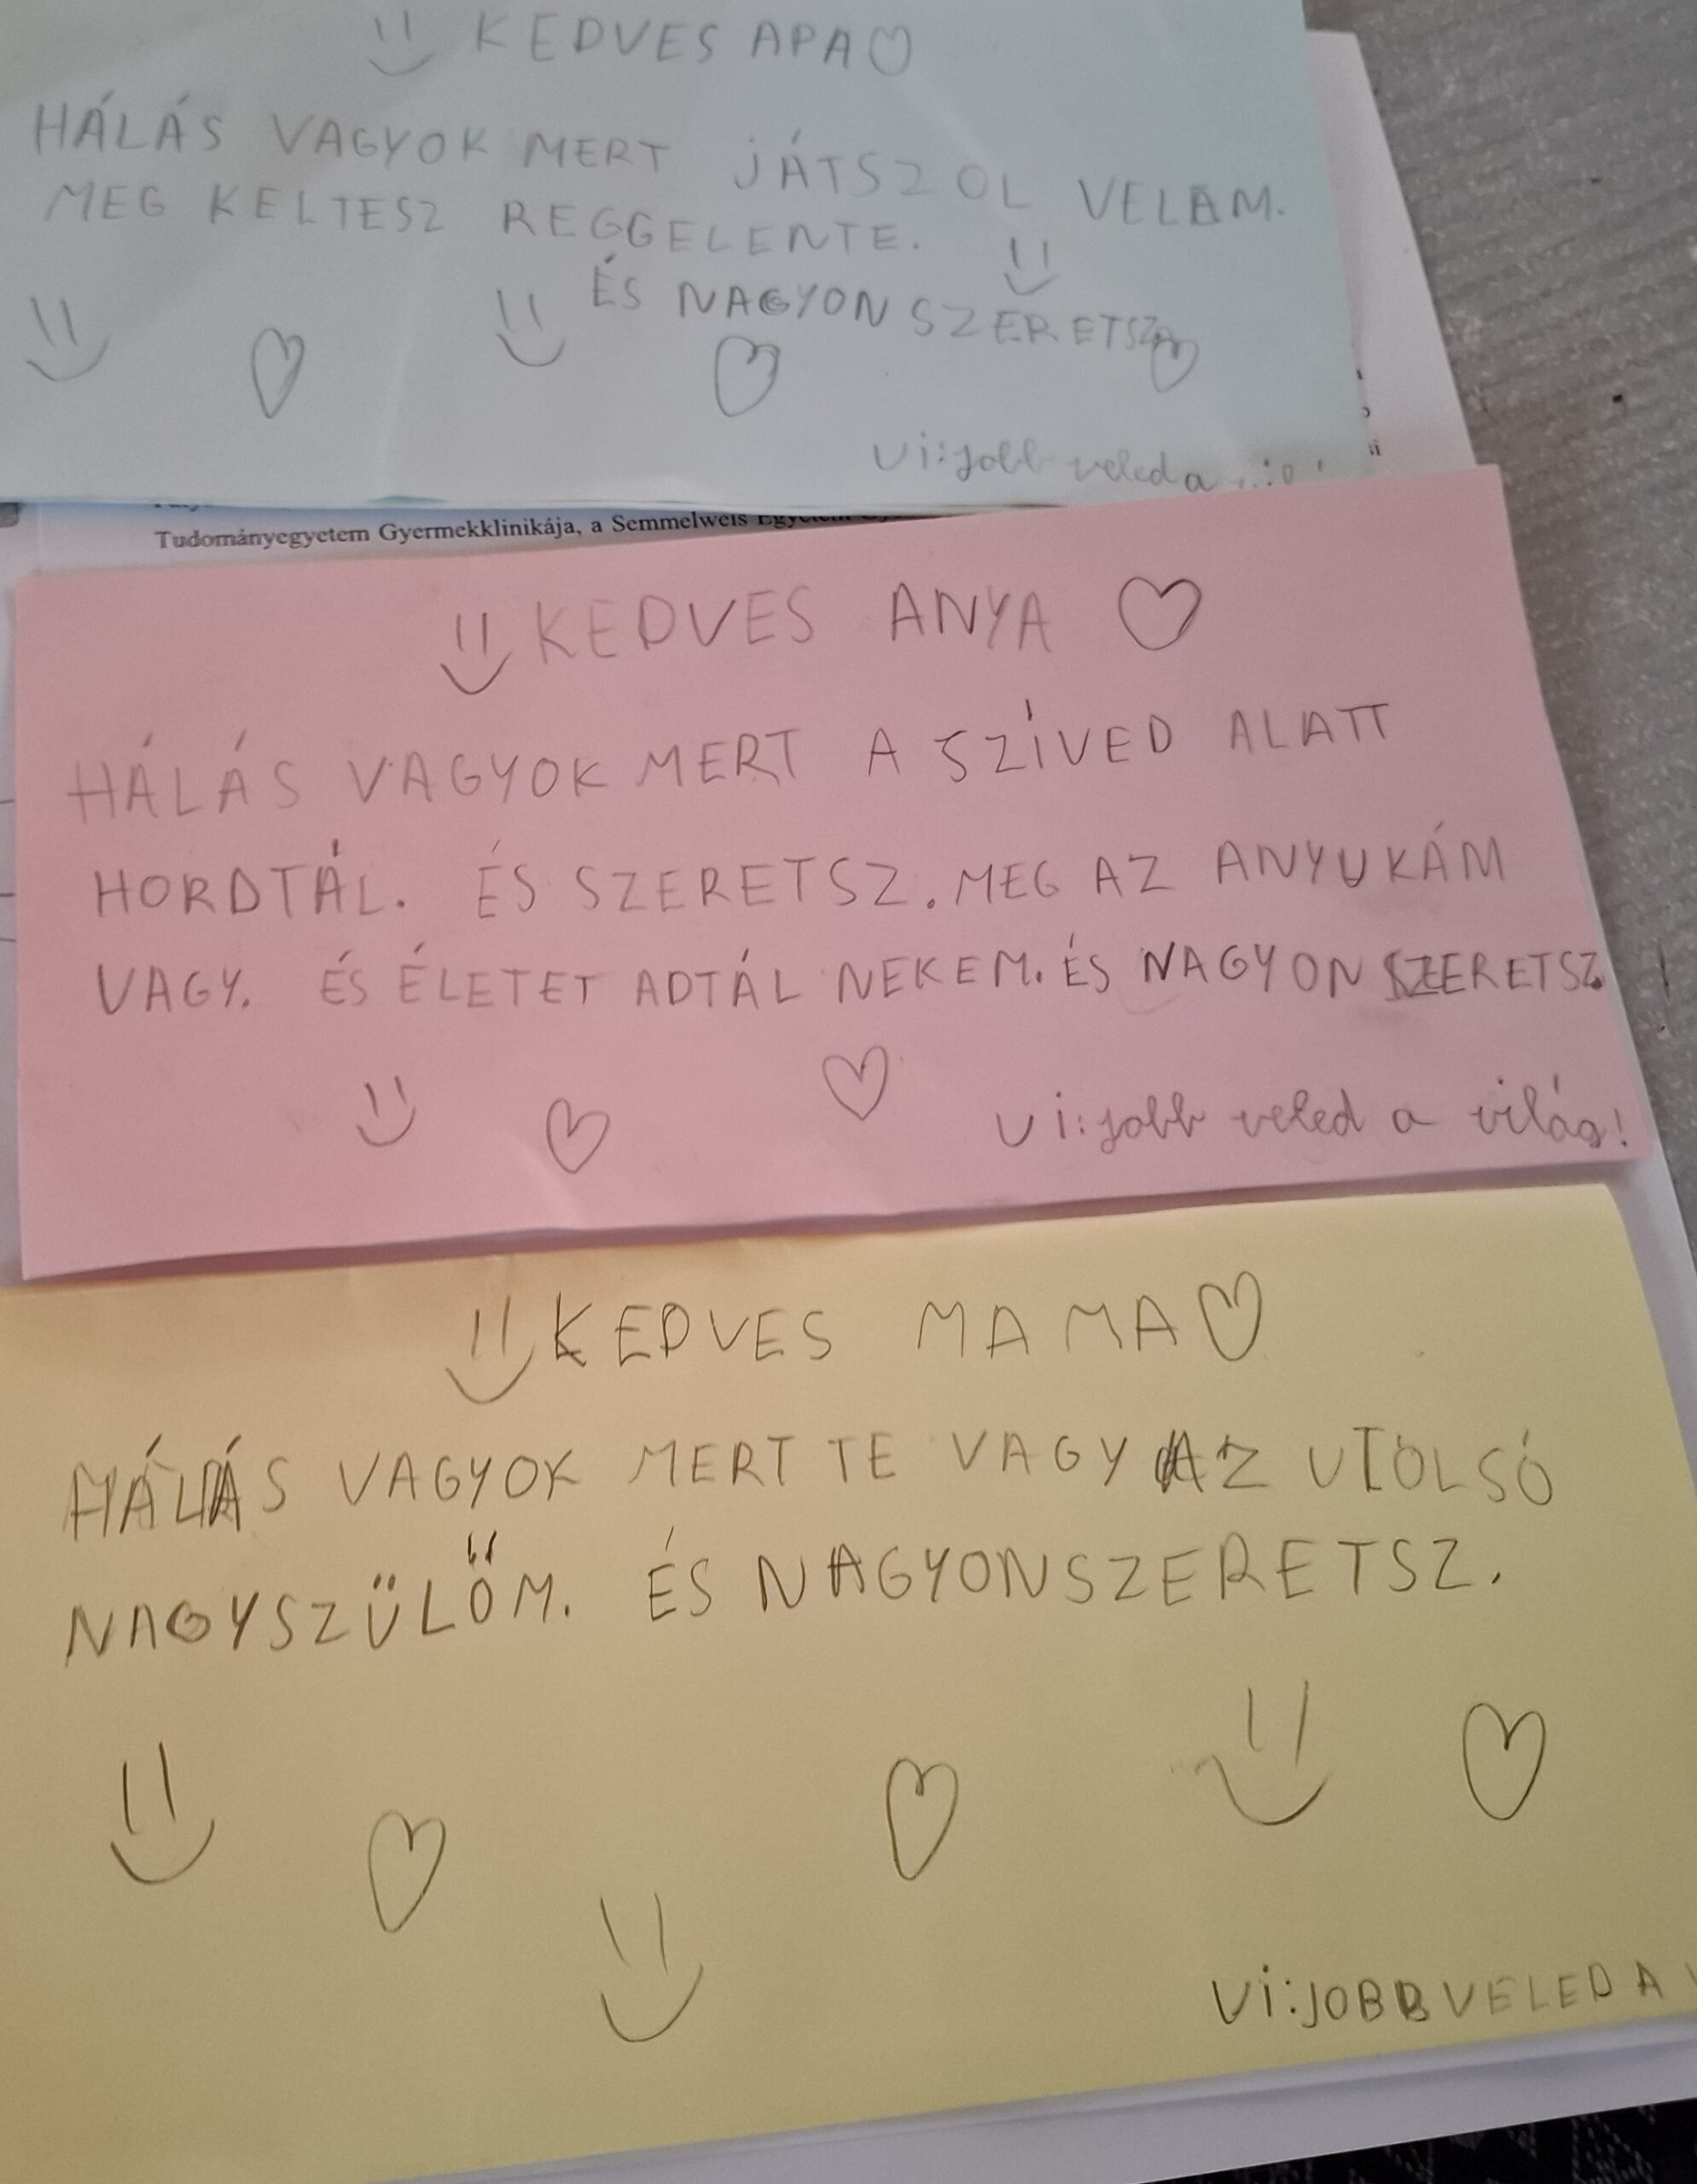 KEDVES APA
HÁLÁS VAGYOK MERT JÁTSZOL VELEM.
MEG KELTESZ REGGELENTE.
ÉS NAGYON SZERETSZ
Ui:jobb veled a
Tudományegyetem Gyermekklinikája, a Semmelweis Egyetem
KEDVES ANYA
HÁLÁS VAGYOK MERT A SZÍVED ALATT
HORDTÁL. ÉS SZERETSZ. MEG AZ ANYUKÁM
VAGY. ÉS ÉLETET ADTÁL NEKEM. ÉS NAGYON SZERETSZ.
Ui:jobb veled a világ!
KEDVES MAMA
HÁLÁS VAGYOK MERT TE VAGY AZ UTOLSÓ
NAGYSZÜLŐM. ÉS NAGYON SZERETSZ.
Ui:JOBB VELED A